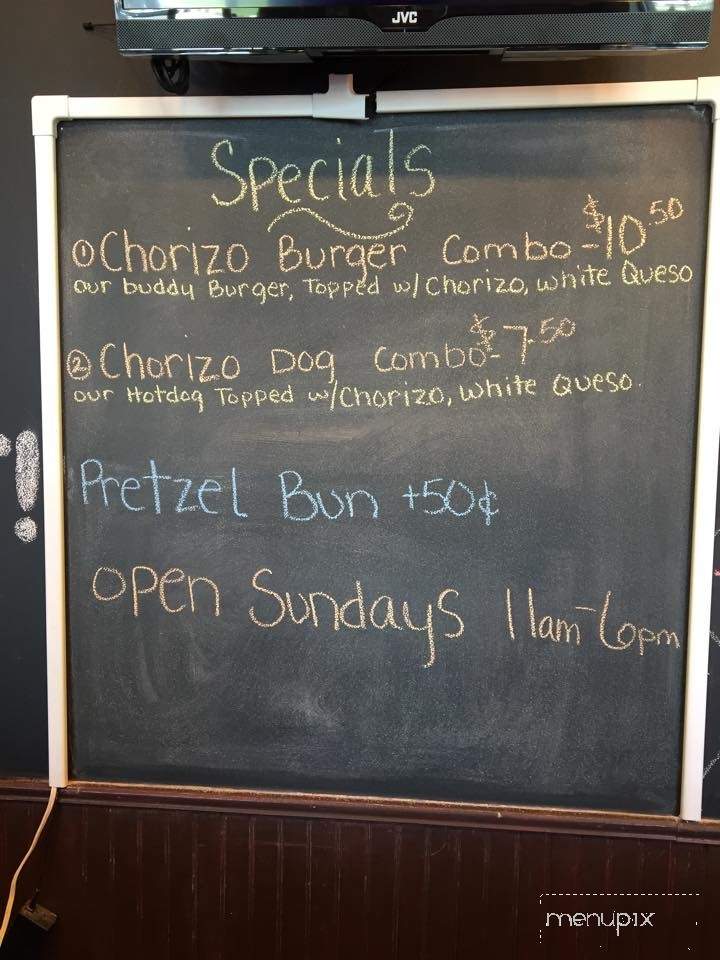 JVC
Specials
① Chorizo Burger Combo - $10.50
our buddy Burger, Topped w/ Chorizo, white Queso
② Chorizo Dog Combo - $7.50
our Hotdog Topped w/Chorizo, White Queso.
Pretzel Bun +50¢
OPEN Sundays 11am-6pm
menupix